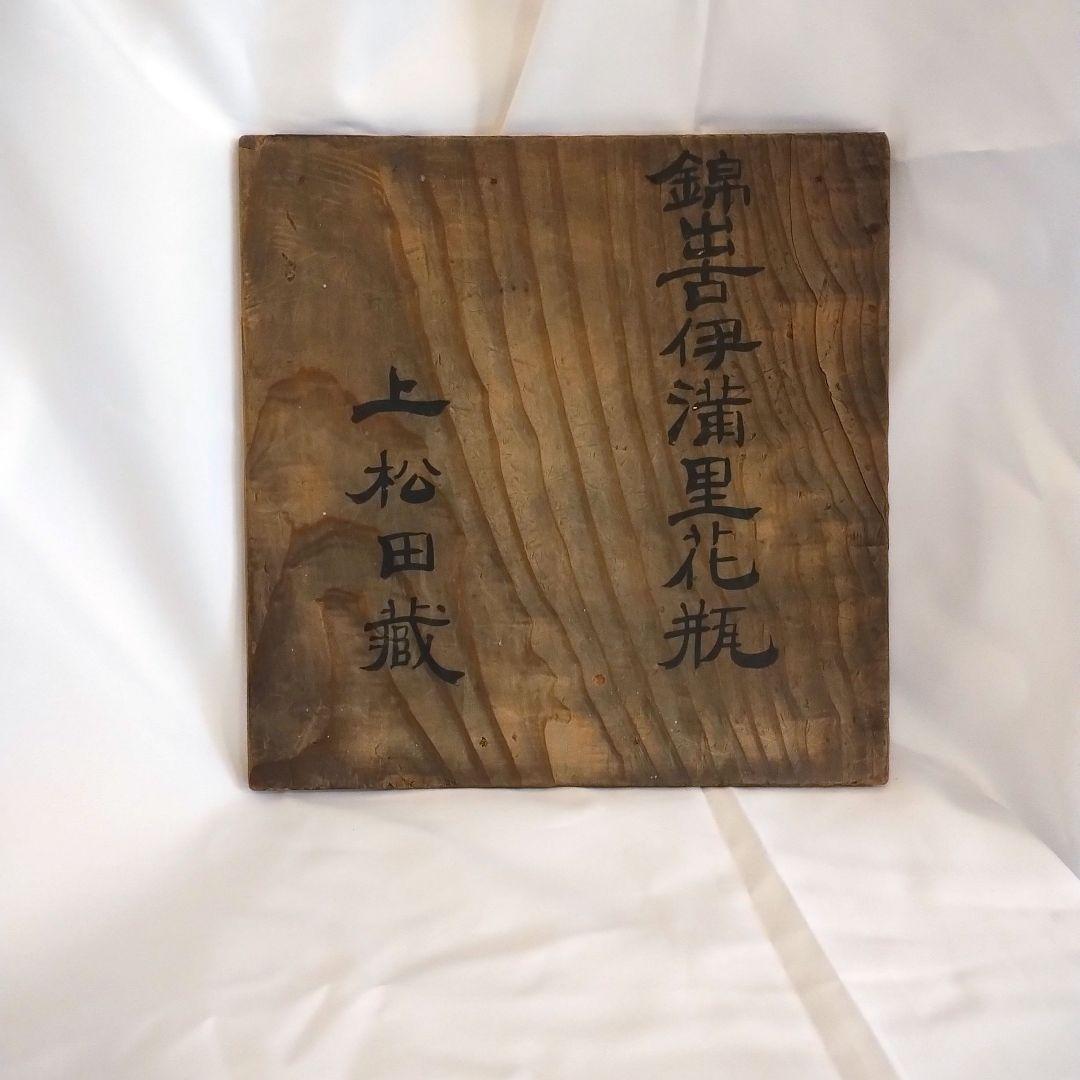 錦出古伊満里花瓶
上松田藏